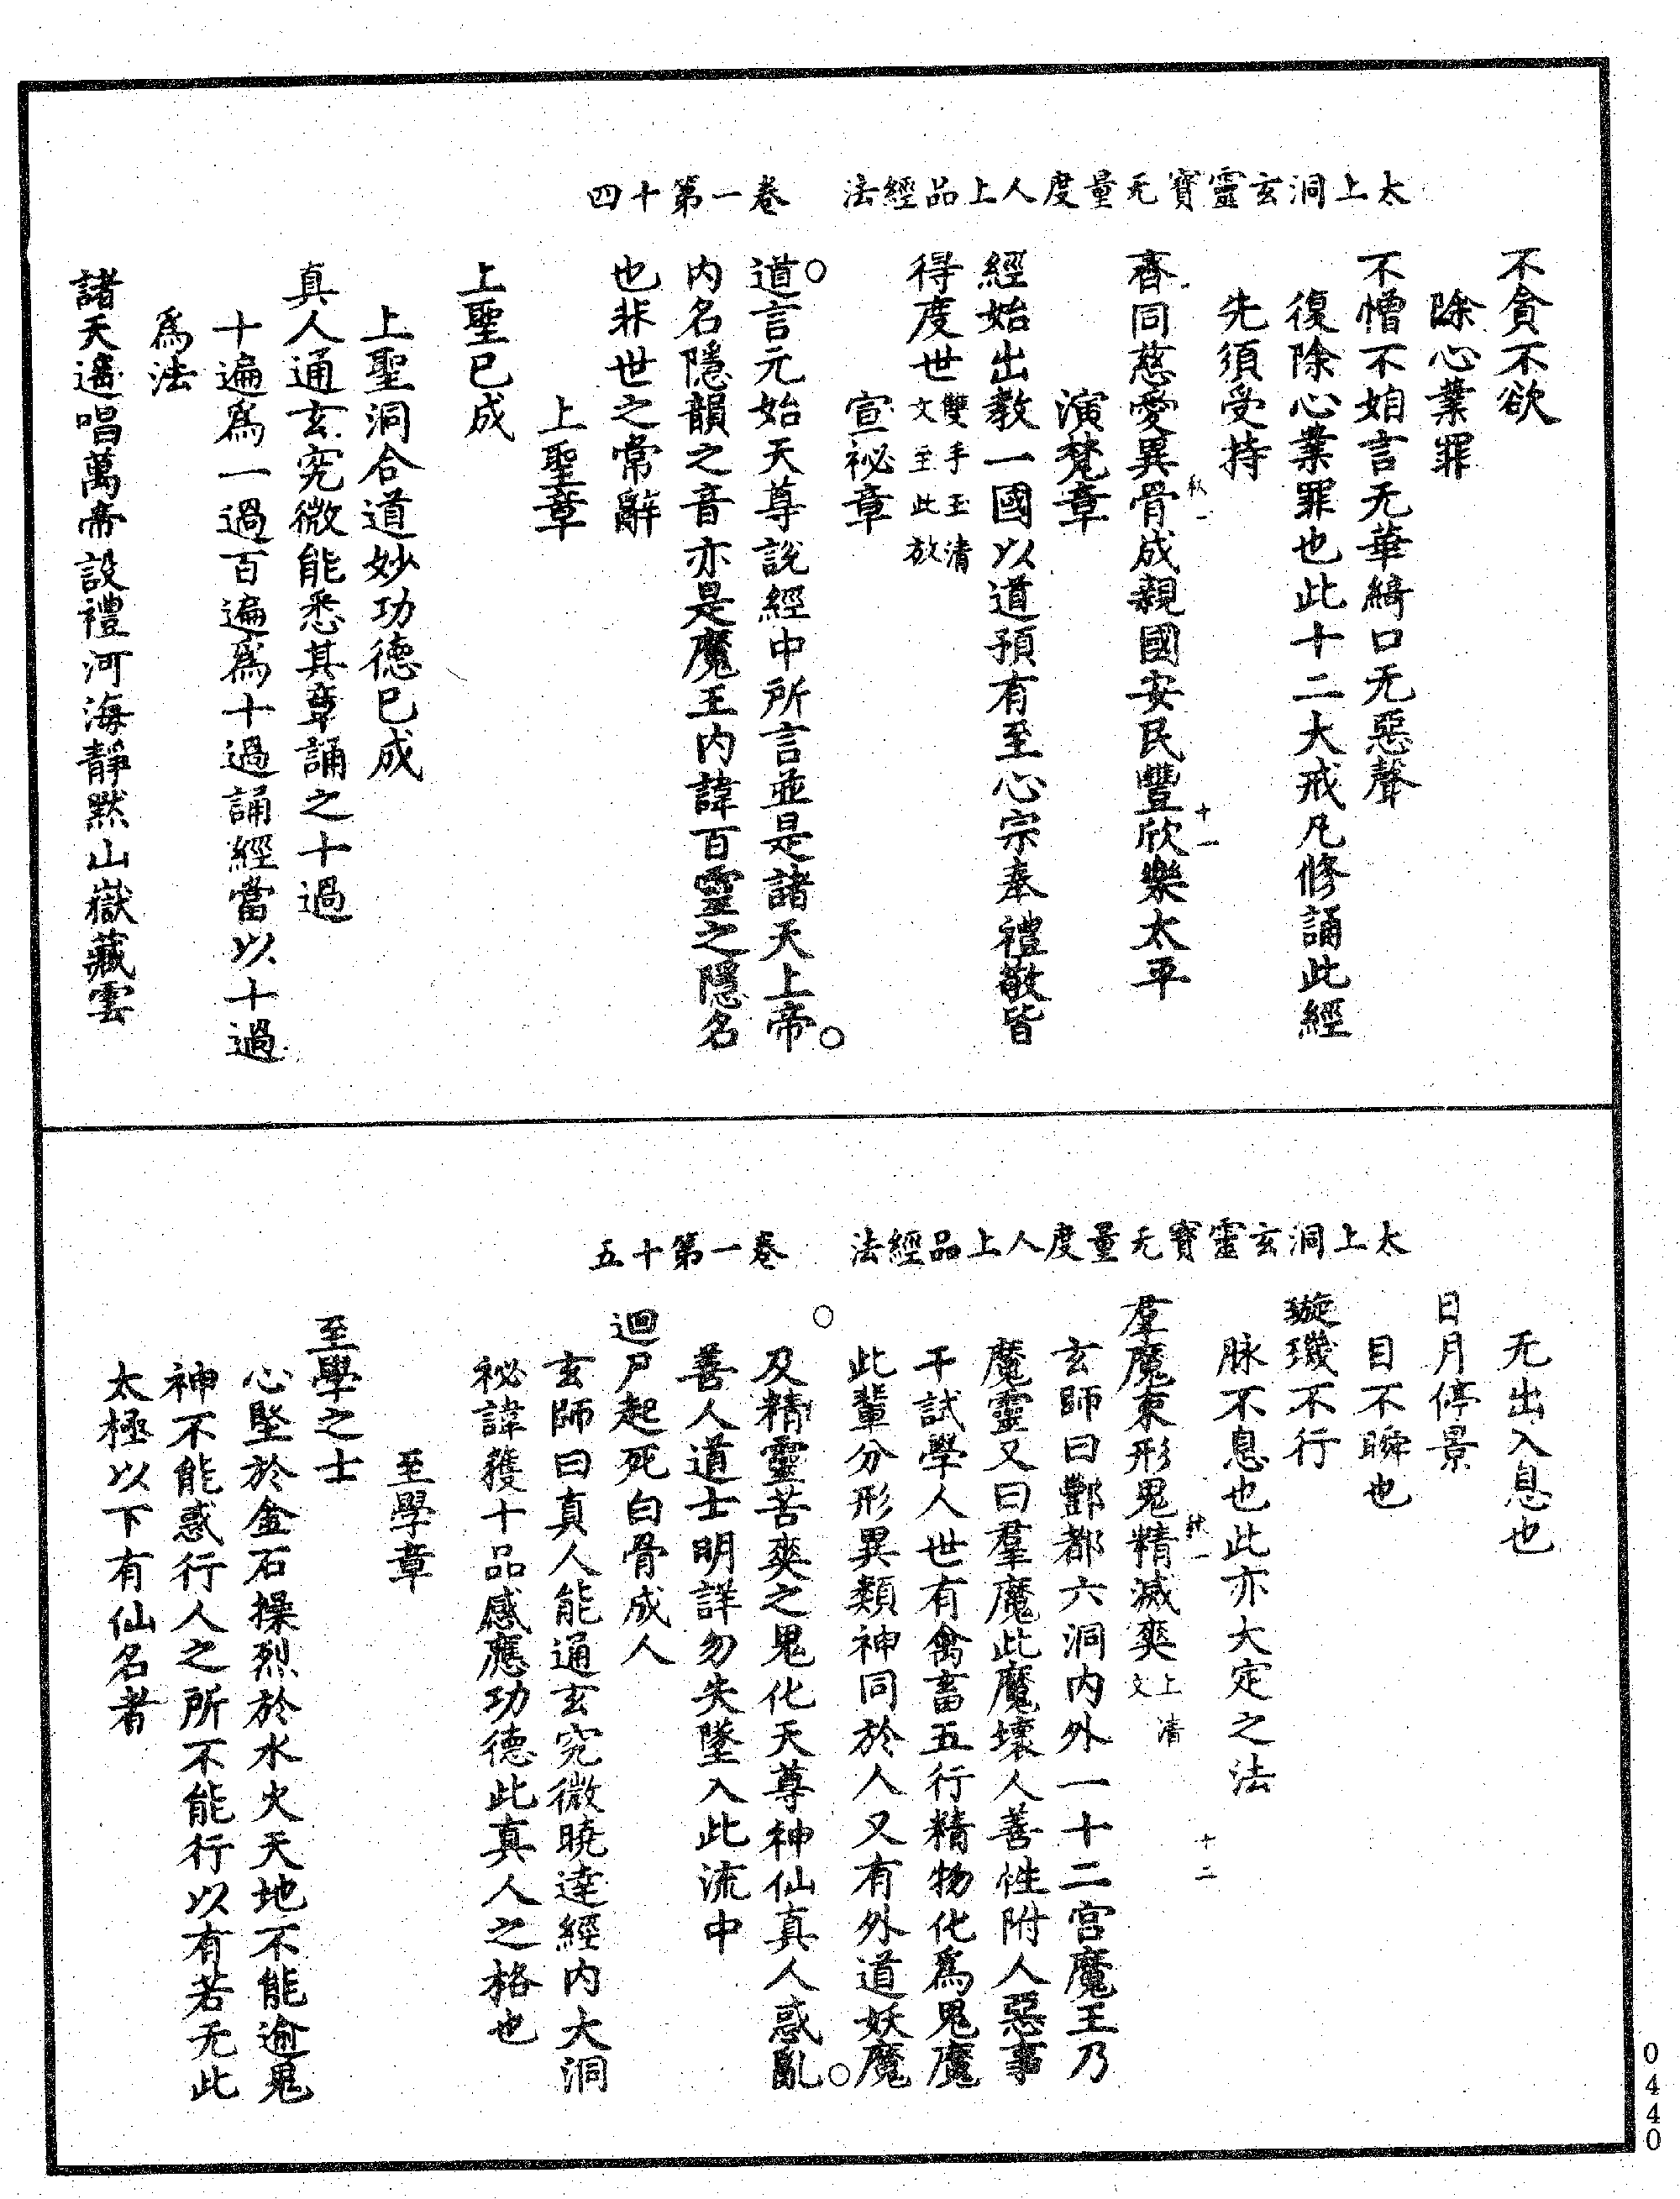 太上洞玄靈寶无量度人上品經法　卷一第十四
不貪不欲
除心業罪
不憎不妲言无華綺口无惡聲
復除心業罪也此十二大戒凡修誦此經
先須受持
齊同慈愛異骨成親國安民豐欣樂太平
十一
演梵章
經始出教一國以道預有至心宗奉禮敬皆
得度世雙手玉清文至此放
宣祕章
道言元始天尊說經中所言並是諸天上帝
內名隱韻之音亦是魔王內諱百靈之隱名
也非世之常辭
上聖章
上聖已成
上聖洞合道妙功德已成
真人通玄究微能悉其章誦之十過
十遍爲一過百遍爲十過誦經當以十過
爲法
諸天遙唱萬帝設禮河海靜默山嶽藏雲
太上洞玄靈寶无量度人上品經法　卷一第十五
无出入息也
日月停景
目不瞬也
璇璣不行
脉不息也此亦大定之法
十二
羣魔束形鬼精滅爽上清文
玄師曰酆都六洞內外一十二宫魔王乃
魔靈又曰羣魔此魔壞人善性附人惡事
干試學人世有禽畜五行精物化爲鬼魔
此輩分形異類神同於人又有外道妖魔
及精靈苦爽之鬼化天尊神仙真人惑亂
善人道士明詳勿失墜入此流中
迴尸起死白骨成人
玄師曰真人能通玄究微曉達經內大洞
祕諱獲十品感應功德此真人之格也
至學章
至學之士
心堅於金石操烈於水火天地不能逾鬼
神不能惑行人之所不能行以有若无此
太極以下有仙名者
0440